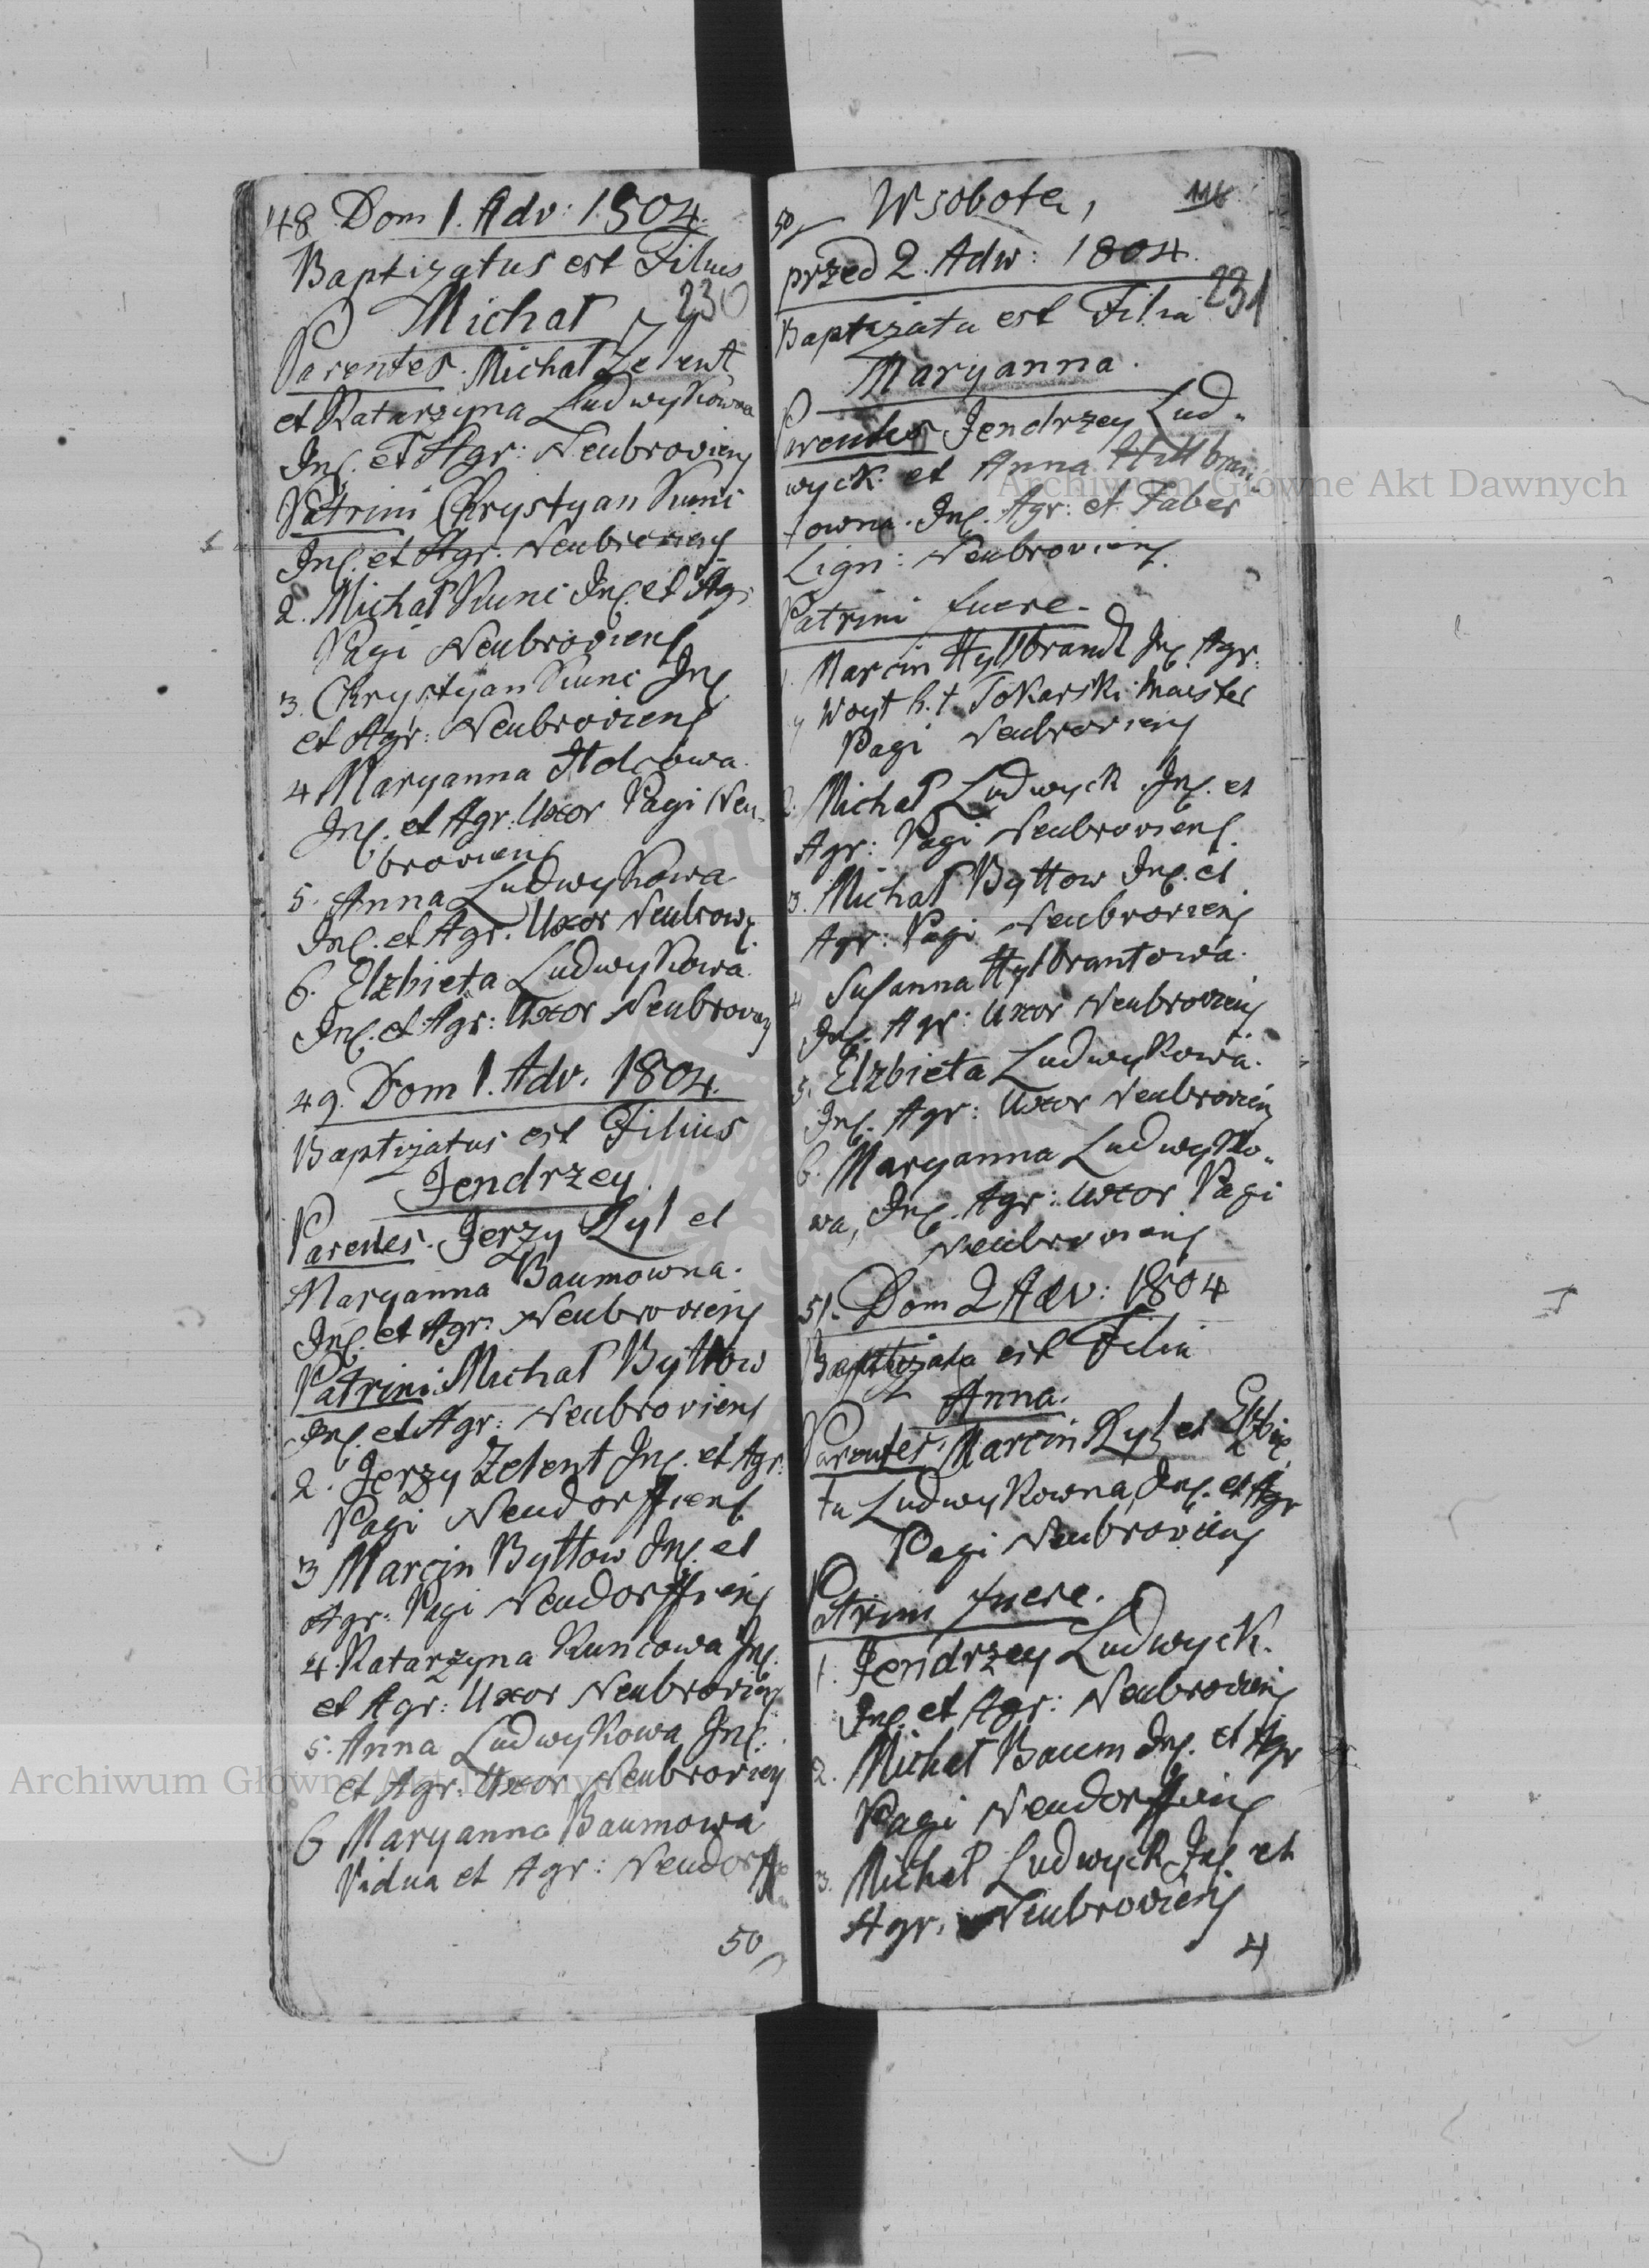 48 Dom 1. Adv: 1804.
Baptizatus est Filius
Michał 230
Parentes. Michał Zelent
et Katarzyna Ludwykowna
Inq. et Agr: Neubroviens
Patrini Chrystyan Kunc
Inq. et Agr. Neubroviens
2. Michał Kunc Inq. et Agr
Pagi Neubroviens
3. Chrystyan Kunc Inq
et Agr: Neubroviens
4 Maryanna
Inq. et Agr: Uxor Pagi Neu-
broviens
5. Anna Ludwykowa
Inq. et Agr. Uxor
6. Elzbieta Ludwykowa.
Inq. et Agr: Uxor
49. Dom 1. Adv. 1804.
Baptizatus est Filius
Jendrzey.
Parentes. Jerzy Ryl et
Maryanna Baumowna.
Inq. et Agr: Neubroviens
Patrini. Michał Byttow
Inq. et Agr: Neubroviens
2. Jerzy Zelent Inq. et Agr:
Pagi Neudorffiens
3 Marcin Byttow Inq. et
Agr: Pagi Neudorffiens
4. Katarzyna Kuncowa Inq.
et Agr: Uxor Neubroviens
5. Anna Ludwykowa Inq.
et Agr: Uxor Neubroviens
6 Maryanna Baumowa
Vidua et Agr:
50
50 W sobotę, 116
przed 2. Adw: 1804.
Baptizata est Filia 231
Maryanna.
Parentes Jendrzey Lud-
wyck. et Anna Hillbran-
towna. Inq. Agr: et Faber
Lign: Neubroviens.
Patrini fuere.
1. Marcin Hyllbrandt Inq. Agr:
y Woyt h.t. Tokarski Maister
Pagi Neubroviens
2. Michał Ludwyck. Inq. et
Agr: Pagi Neubroviens.
3. Michał Byttow Inq. et
Agr: Pagi Neubroviens
4 Susanna Hylbrantowa.
Inq. Agr: Uxor Neubroviens
5. Elzbieta Ludwykowa.
Inq. Agr: Uxor Neubroviens
6. Maryanna Ludwyko-
wa, Inq. Agr: Uxor Pagi
Neubroviens
51. Dom 2 Adv: 1804
Baptizata est Filia
Anna.
Parentes. Marcin Ryl et Elzbie
ta Ludwykowna, Inq. et Agr
Pagi Neubroviens
Patrini fuere.
1. Jendrzey Ludwyck.
Inq. et Agr: Neubroviens
2. Michał Baum Inq. et Agr
Pagi Neudorffiens
3. Michał Ludwyck Inq. et
Agr. Neubroviens
4
Archiwum Główne Akt Dawnych
Archiwum Główne Akt Dawnych